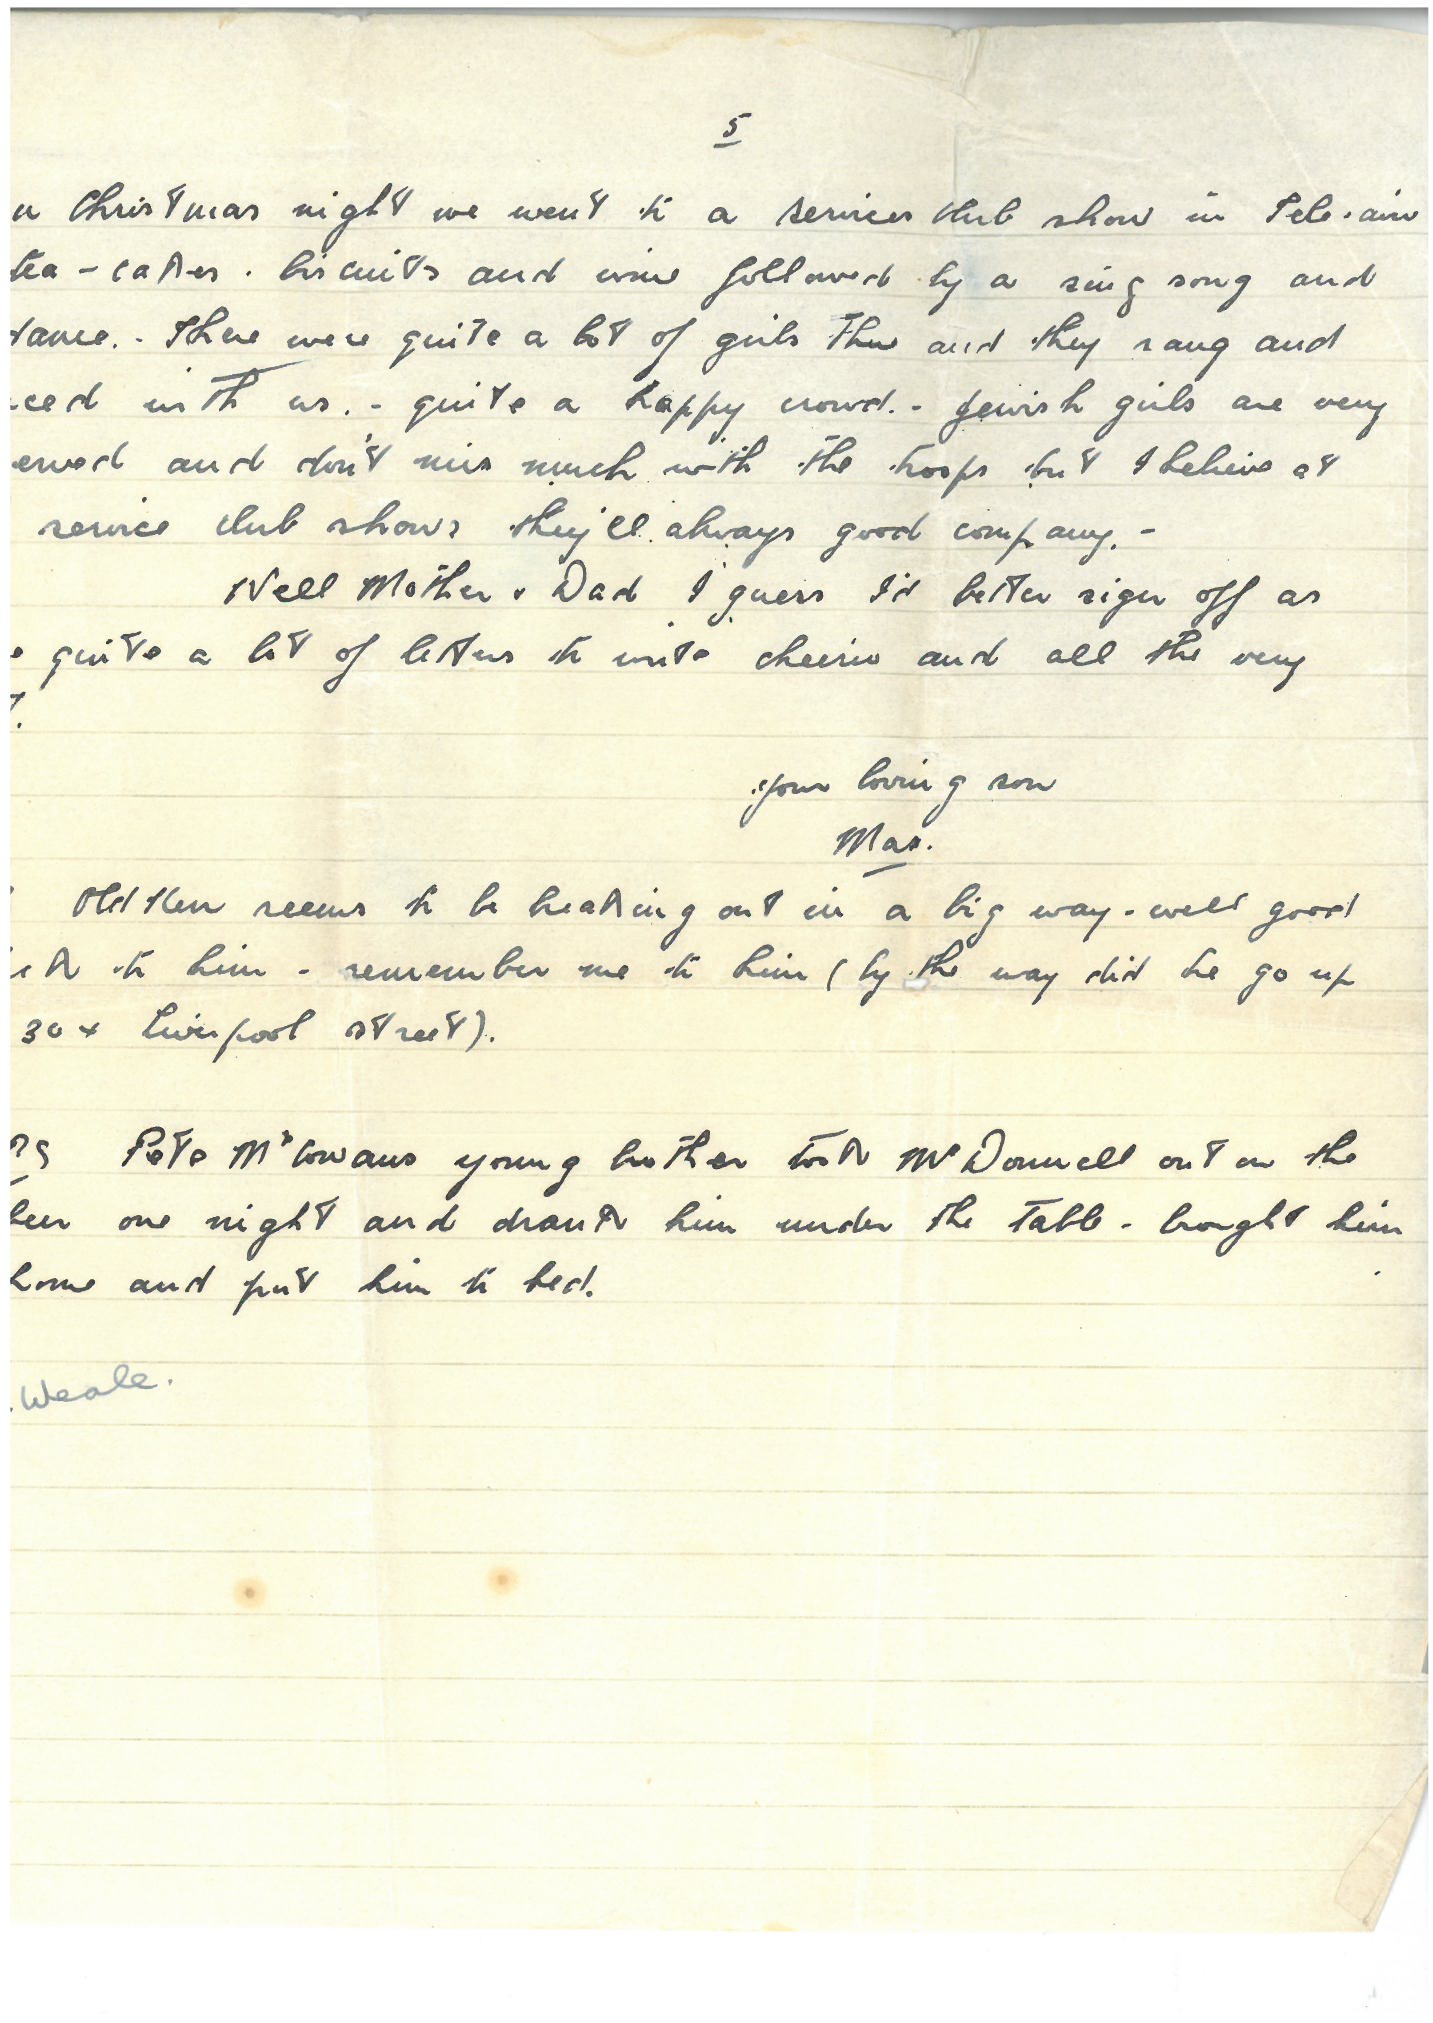 5
n Christmas night we went to a services club show in Tele-aviv
tea - cakes . biscuits and wine followed by a sing song and
dance. - There were quite a lot of girls there and they sang and
ced with us. - quite a happy crowd. - Jewish girls are very
erved and don't mix much with the troops but I believe at
service club shows they'll always good company. -
Well Mother & Dad I guess I'd better sign off as
e quite a lot of letters to write cheerio and all the very
t.
your loving son
Max.
Old Ken seems to be breaking out in a big way - well good
ck to him - remember me to him (by the way did he go up
304 Liverpool street).
PS Pete McCowans young brother took McDonnell out on the
beer one night and drank him under the table - brought him
home and put him to bed.
. Weale.